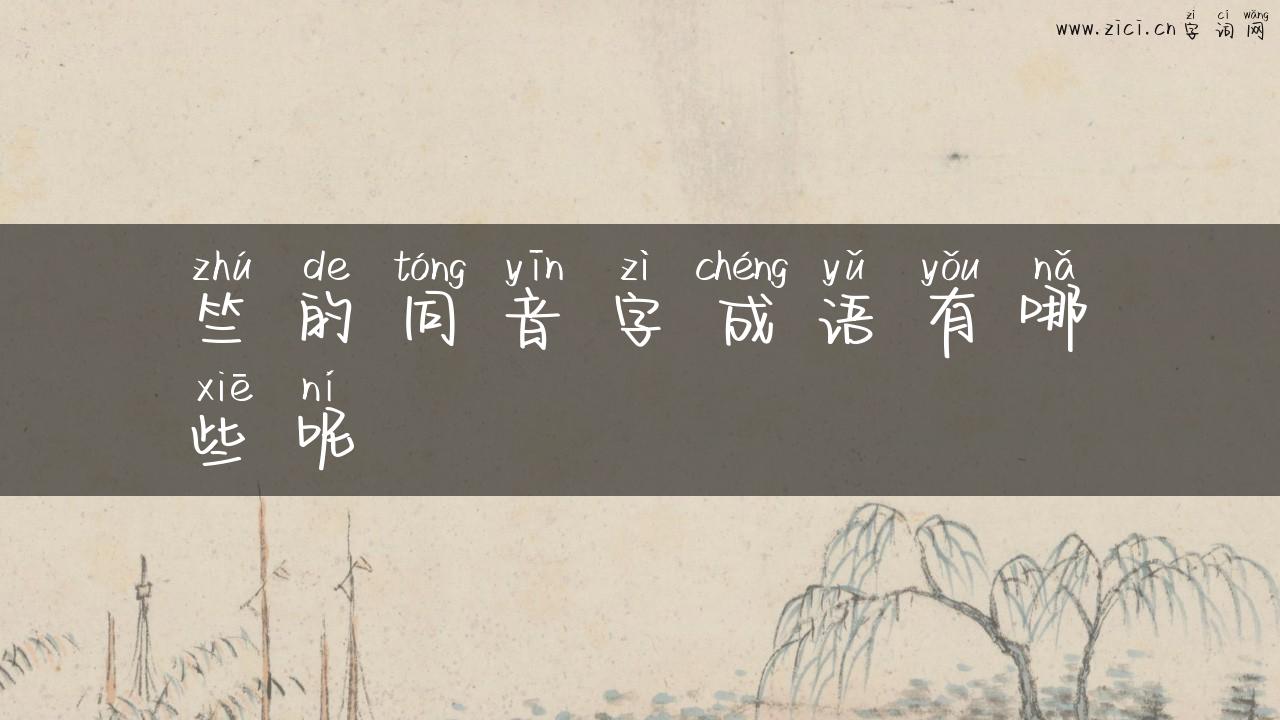 zì cí wǎng
www.zici.cn 字 词 网
zhú de tóng yīn zì chéng yǔ yǒu nǎ
竺 的 同 音 字 成 语 有 哪
xiē ní
些 呢